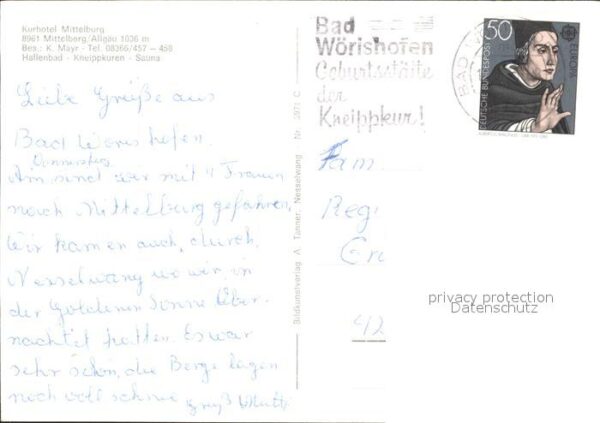 Kurhotel Mittelburg
8961 Mittelberg/Allgäu 1036 m
Bes.: K. Mayr - Tel. 08366/457 — 458
Hallenbad - Kneippkuren - Sauna
Liebe Grüße aus
Bad Wörishofen.
Donnerstag
Am sind wir mit 4 Frauen
nach Mittelburg gefahren,
Wir kamen auch, durch,
Nesselwang wo wir, in
der Goldenen Sonne über-
nachtet hatten. Es war
sehr schön, die Berge lagen
noch voll schnee Gruß Mutti
Bildkunstverlag A. Tanner, Nesselwang Nr. 2971 C
Bad
Wörishofen
Geburtsstätte
der
Kneippkur!
BAD
50
EUROPA
DEUTSCHE BUNDESPOST
Fam
Regi
42
privacy protection
Datenschutz